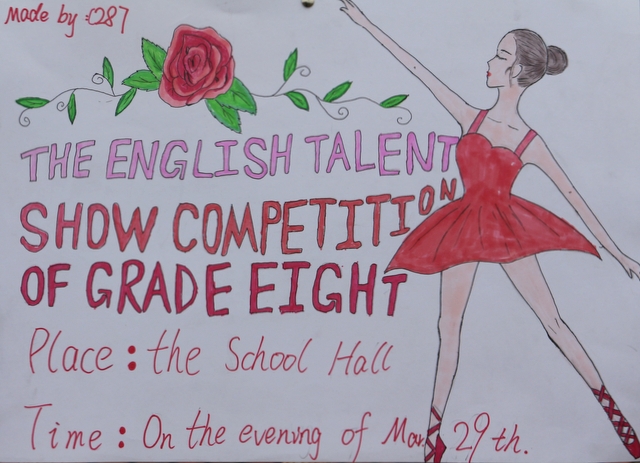 Made by: C287
THE ENGLISH TALENT
SHOW COMPETITION
OF GRADE EIGHT
Place: the School Hall
Time: On the evening of Mar. 29th.